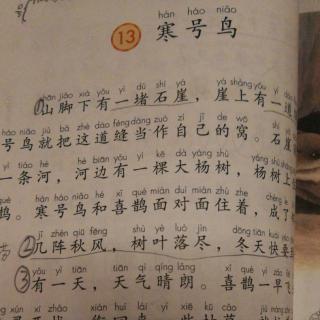 hán háo niǎo
13 寒号鸟
shān jiǎo xià yǒu yì dǔ shí yá yá shàng yǒu yí dào
①山脚下有一堵石崖，崖上有一道
háo niǎo jiù bǎ zhè dào fèng dàng zuò zì jǐ de wō shí
号鸟就把这道缝当作自己的窝。石
yì tiáo hé hé biān yǒu yì kē dà yáng shù yáng shù shàng
一条河，河边有一棵大杨树，杨树上
què hán háo niǎo hé xǐ què miàn duì miàn zhù zhe chéng le
鹊。寒号鸟和喜鹊面对面住着，成了
jǐ zhèn qiū fēng shù yè luò jìn dōng tiān kuài yào
②几阵秋风，树叶落尽，冬天快要
yǒu yì tiān tiān qì qíng lǎng xǐ què yì zǎo fēi
③有一天，天气晴朗。喜鹊一早飞
xún zhǎo huí lái yì xiē kū cǎo